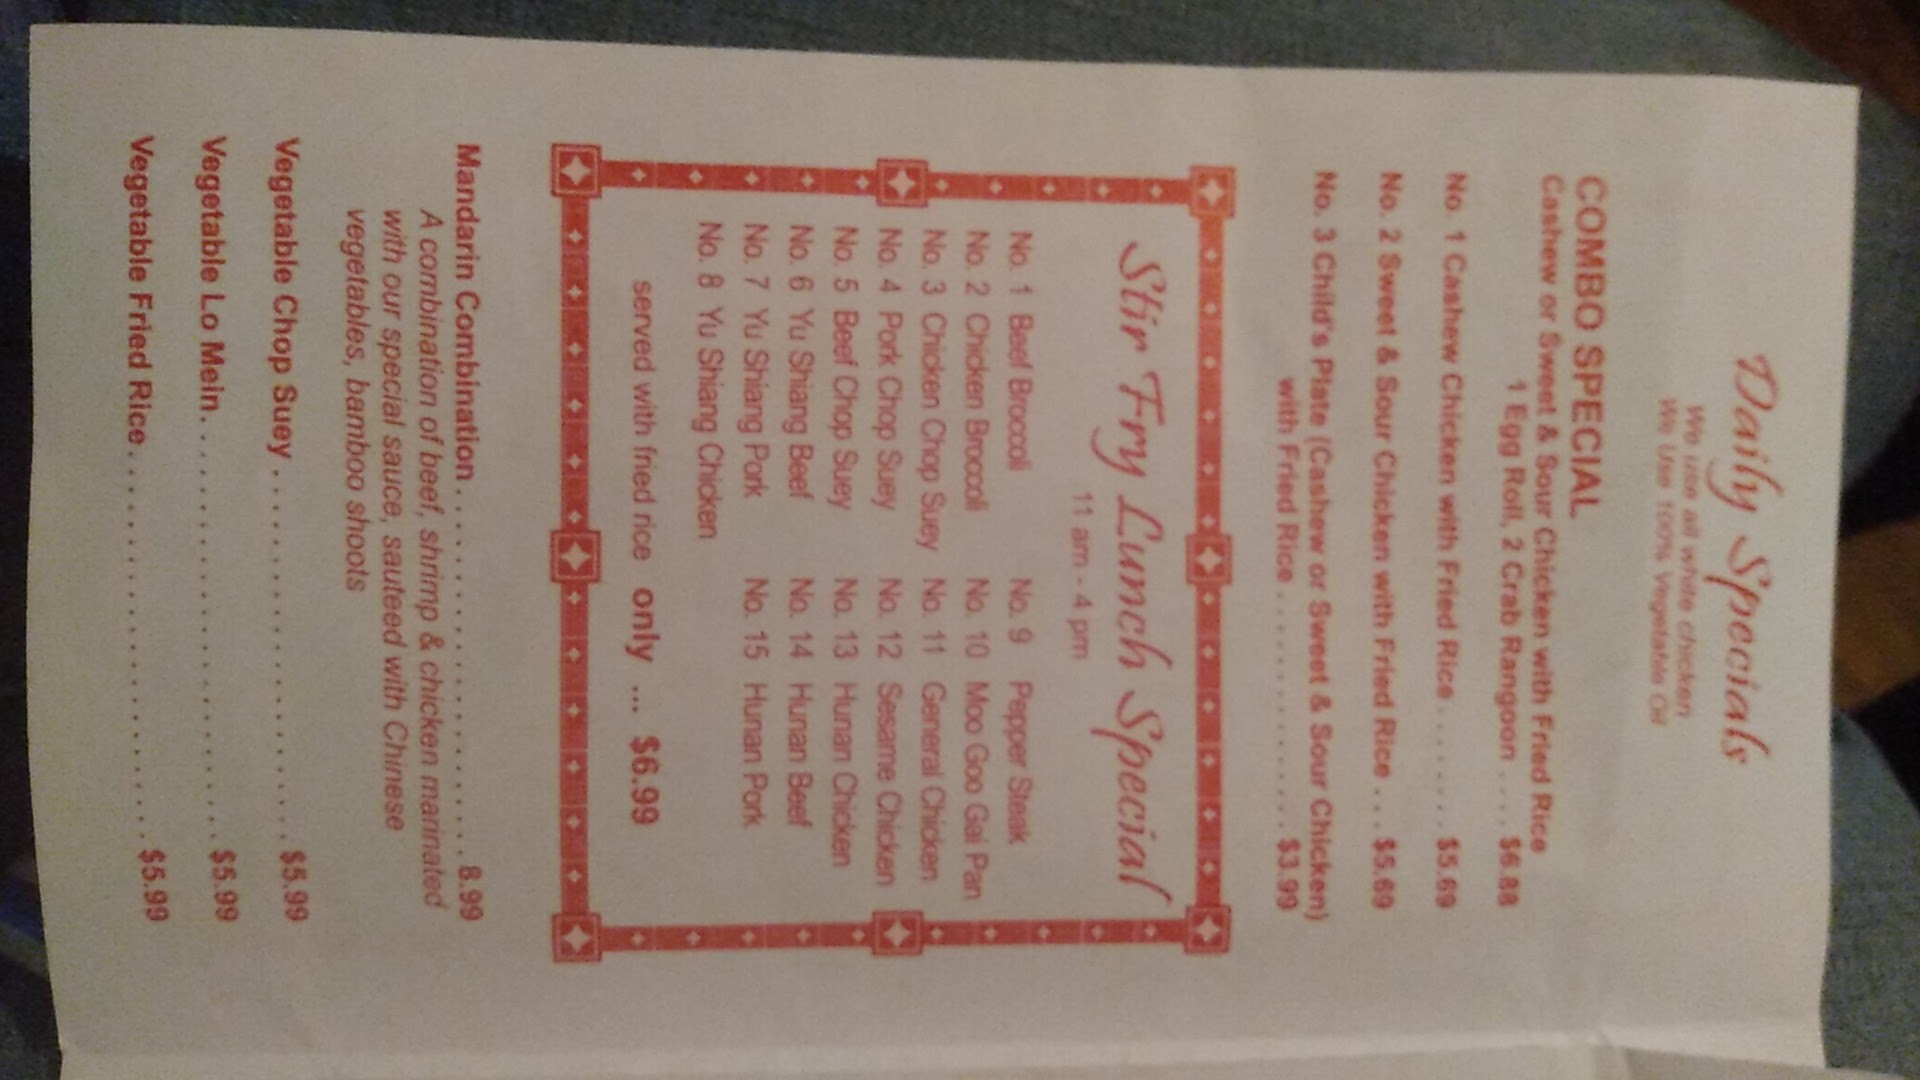 Daily Specials
We use all white chicken
We Use 100% Vegetable Oil
COMBO SPECIAL
Cashew or Sweet & Sour Chicken with Fried Rice
1 Egg Roll, 2 Crab Rangoon . . . . $6.88
No. 1 Cashew Chicken with Fried Rice . . . . . . . . $5.69
No. 2 Sweet & Sour Chicken with Fried Rice . . . $5.69
No. 3 Child's Plate (Cashew or Sweet & Sour Chicken)
with Fried Rice . . . . . . . . . . . . . . . . $3.99
Stir Fry Lunch Special
11 am - 4 pm
No. 1 Beef Broccoli No. 9 Pepper Steak
No. 2 Chicken Broccoli No. 10 Moo Goo Gai Pan
No. 3 Chicken Chop Suey No. 11 General Chicken
No. 4 Pork Chop Suey No. 12 Sesame Chicken
No. 5 Beef Chop Suey No. 13 Hunan Chicken
No. 6 Yu Shiang Beef No. 14 Hunan Beef
No. 7 Yu Shiang Pork No. 15 Hunan Pork
No. 8 Yu Shiang Chicken
served with fried rice only ... $6.99
Mandarin Combination . . . . . . . . . . . . . . . . . . . . . . . 8.99
A combination of beef, shrimp & chicken marinated
with our special sauce, sauteed with Chinese
vegetables, bamboo shoots
Vegetable Chop Suey . . . . . . . . . . . . . . . . . . . . . . $5.99
Vegetable Lo Mein. . . . . . . . . . . . . . . . . . . . . . . . . $5.99
Vegetable Fried Rice . . . . . . . . . . . . . . . . . . . . . . . $5.99